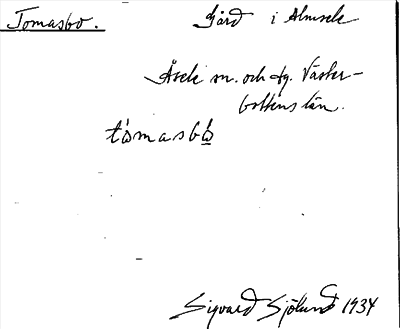 Tomasbo. Gård i Almsele
Åsele sn. och tg. Väster-
bottens län.
tómasbò
Sigvard Sjölund 1934